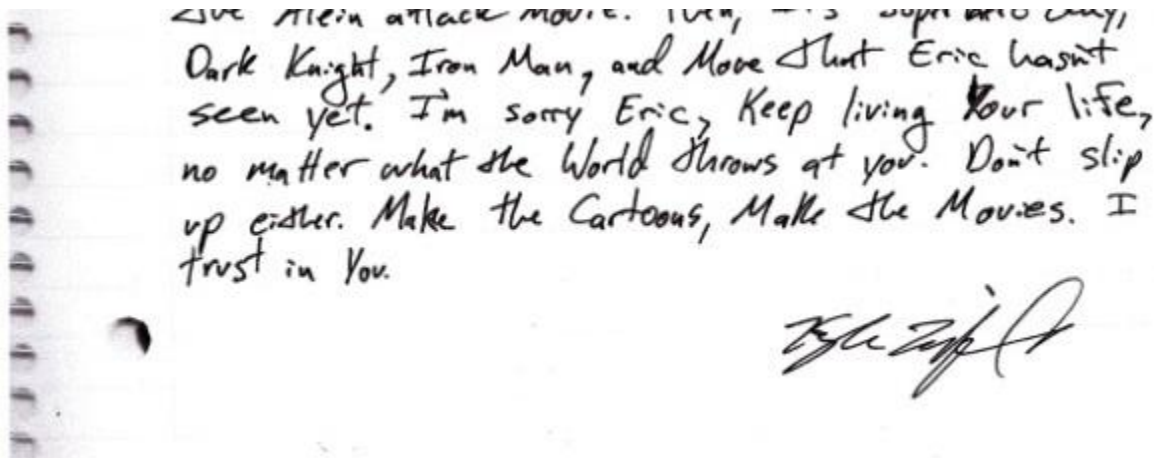 attack Movie. Then,
Dark Knight, Iron Man, and Move that Eric hasn't
seen yet. I'm sorry Eric, Keep living Your life,
no matter what the World throws at you. Don't slip
up either. Make the Cartoons, Make the Movies. I
trust in You.